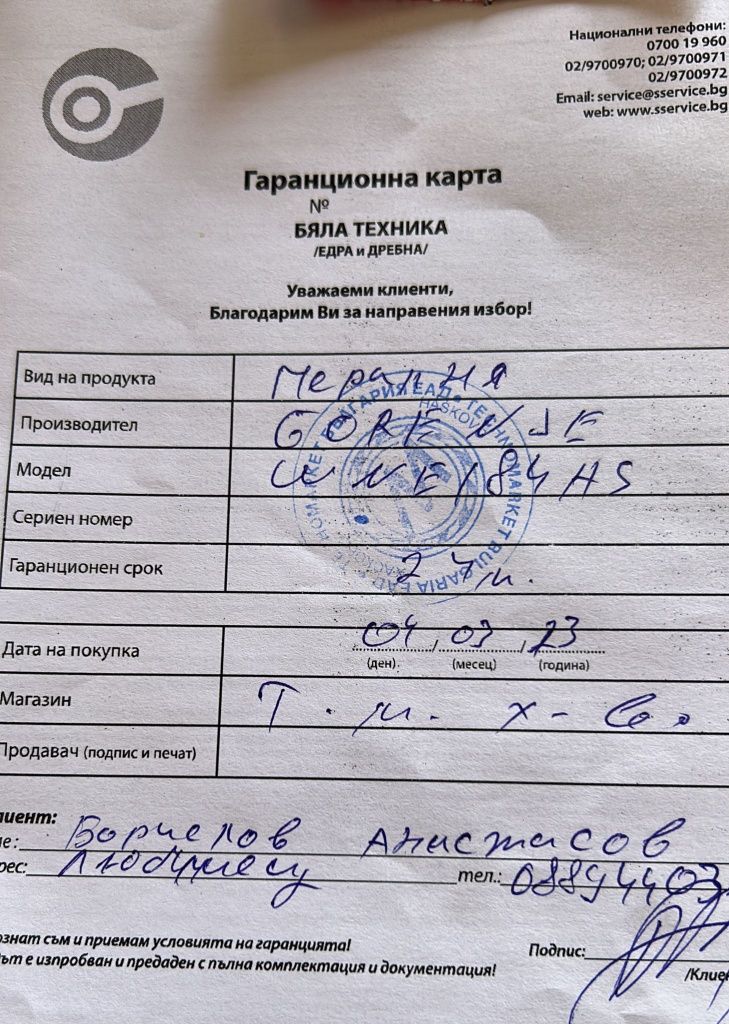 Национални телефони:
0700 19 960
02/9700970; 02/9700971
02/9700972
Email: service@sservice.bg
web: www.sservice.bg
Гаранционна карта
№
БЯЛА ТЕХНИКА
/ЕДРА и ДРЕБНА/
Уважаеми клиенти,
Благодарим Ви за направения избор!
Вид на продукта Пералня
Производител GORENJE
Модел WNEI84AS
Сериен номер
Гаранционен срок 24м.
TECHNOMARKET BULGARIA EAD
HASKOVO
Дата на покупка 04 / 03 / 23
(ден) (месец) (година)
Магазин Т.м. х-во
Продавач (подпис и печат)
лиент:
ме: Анастасов
рес: тел.: 08894403
ознат съм и приемам условията на гаранцията! Подпис:
ът е изпробван и предаден с пълна комплектация и документация! /Клие